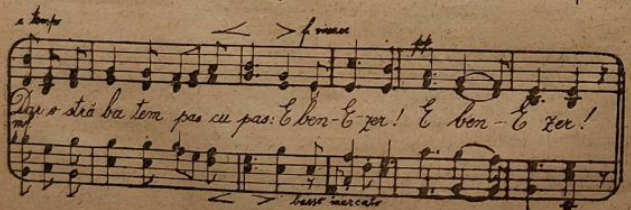 a tempo
f
ff
Dar o străbatem pas cu pas: E-ben-E-zer! E ben-E zer!
mf
basso marcato